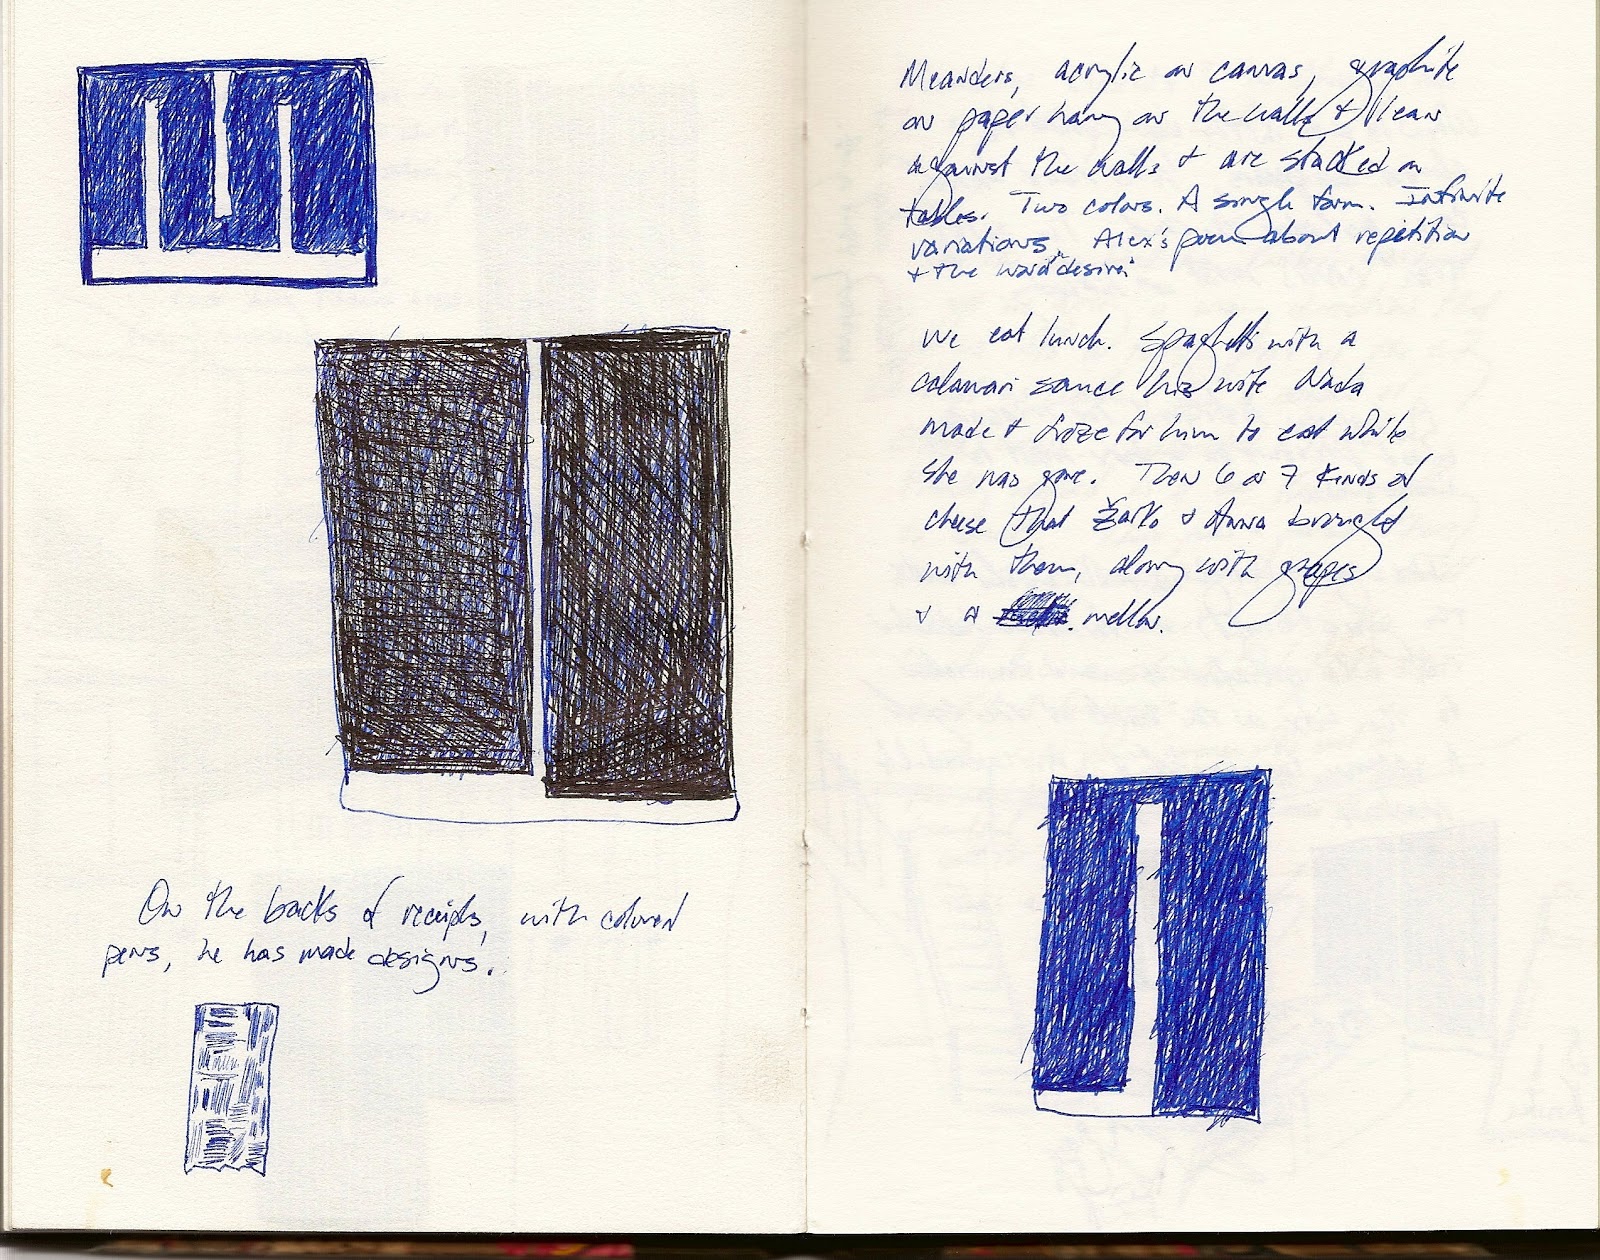 On the backs of receipts, with colored
pens, he has made designs.
Meanders, acrylic on canvas, graphite
on paper hang on the walls & lean
against the walls & are stacked on
tables. Two colors. A single form. Infinite
variations. Alex's poem about repetition
& the word "desire."
We eat lunch. Spaghetti with a
calamari sauce his wife Nada
made & froze for him to eat while
she was gone. Then 6 or 7 kinds of
cheese that Žarko & Anna brought
with them, along with grapes
& a mellow.